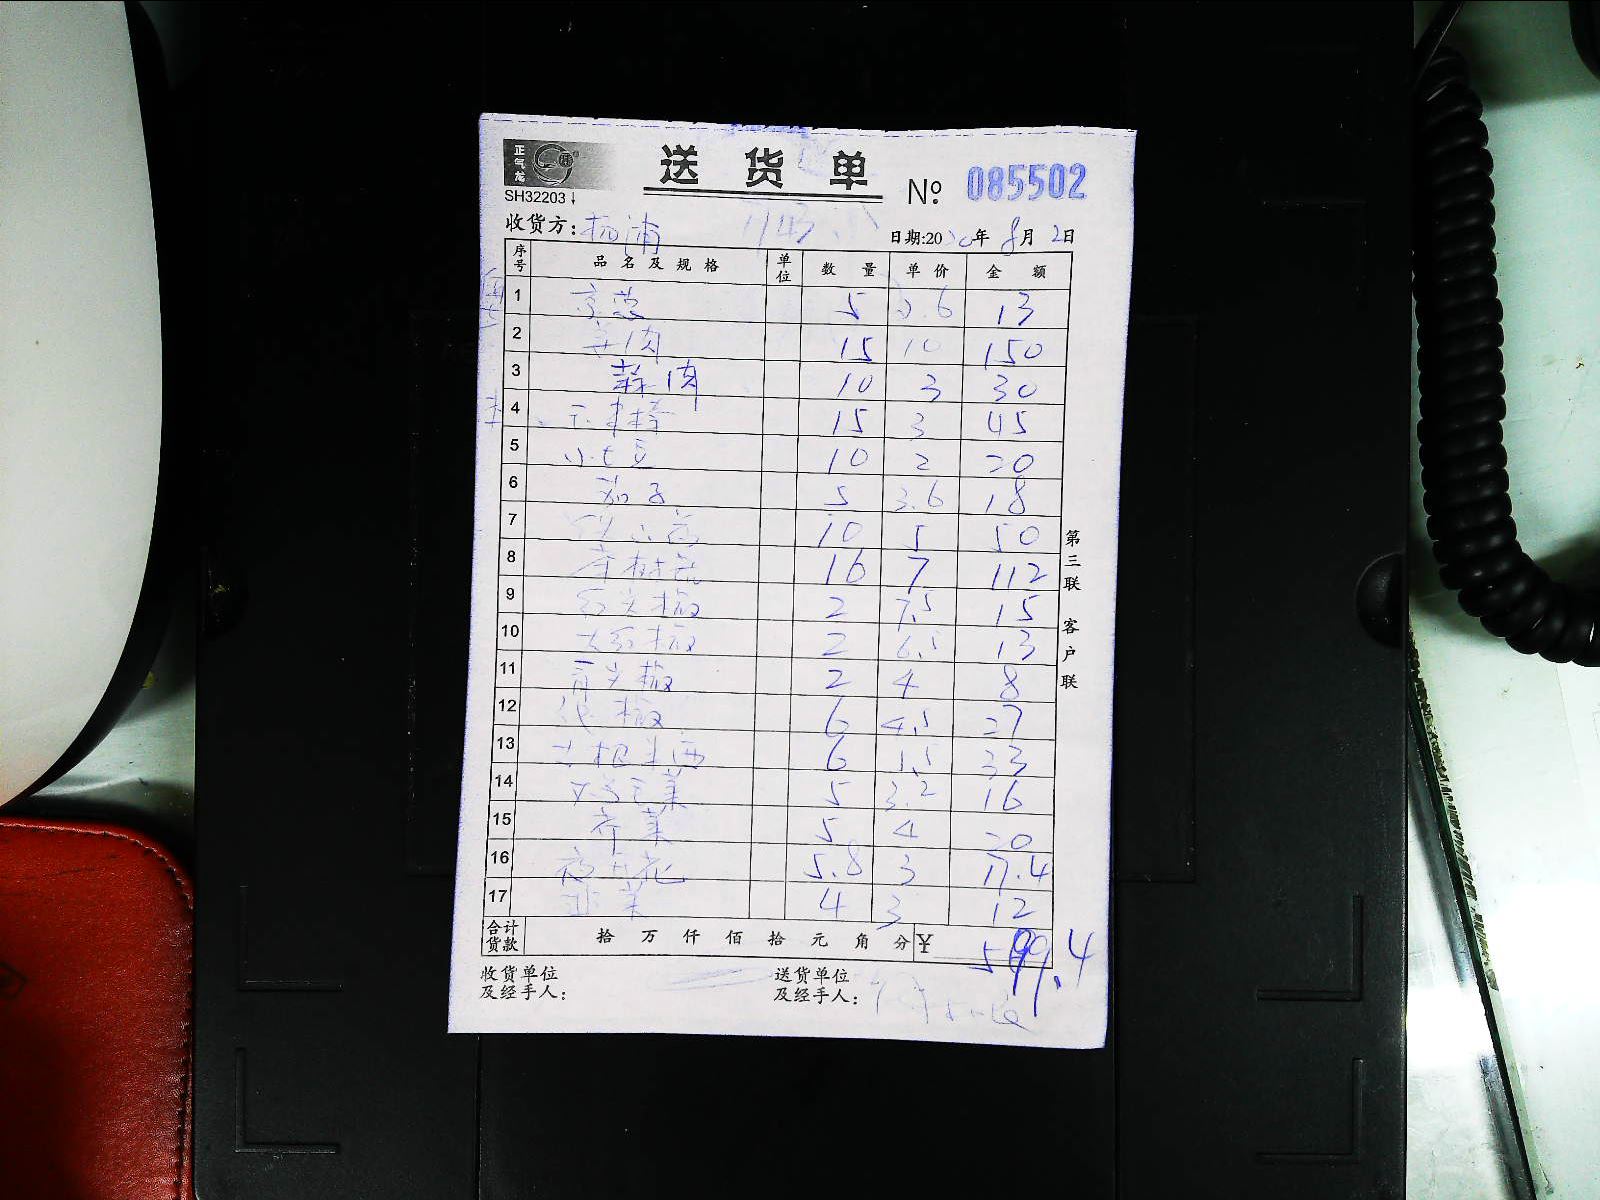 正气龙
送货单 № 085502
SH32203
收货方: 杨浦 日期:2020年8月2日
序号 品名及规格 单位 数量 单价 金额
1 京葱 5 2.6 13
2 姜肉 15 10 150
3 蒜肉 10 3 30
4 3 45 15
5 小土豆 10 2 20
6 茄子 5 3.6 18
7 10 5 50
8 16 7 112
9 红尖椒 2 7.5 15
10 大红椒 2 6.5 13
11 青尖椒 2 4 8
12 椒 6 4.5 27
13 6 33
14 菜 5 3.2 16
15 芹菜 5 4 20
16 5.8 3 17.4
17 韭菜 4 3 12
合计货款 拾 万 仟 佰 拾 元 角 分 ¥ 599.4
收货单位及经手人: 送货单位及经手人:
第三联 客户联